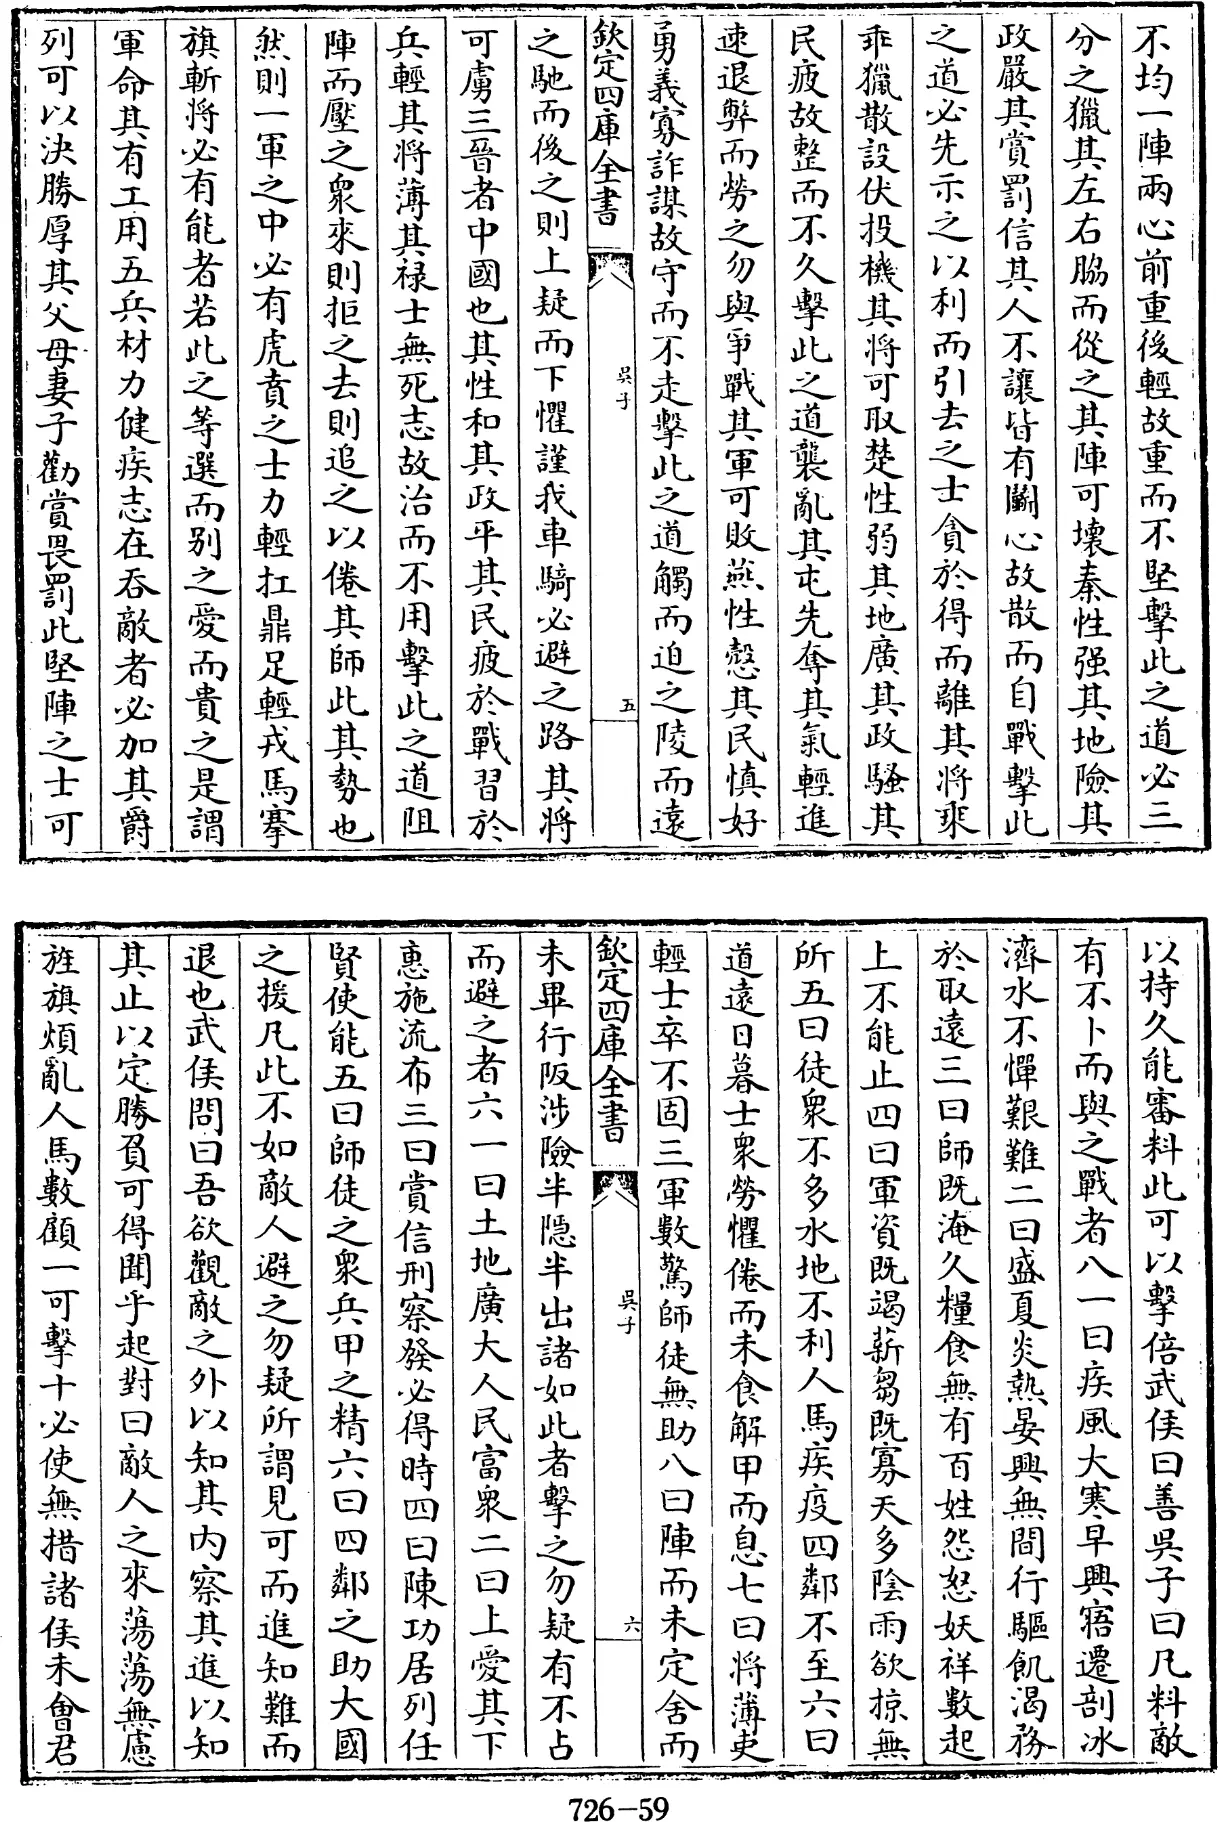 不均一陣兩心前重後輕故重而不堅擊此之道必三
分之獵其左右脇而從之其陣可壊秦性强其地險其
政嚴其賞罰信其人不讓皆有鬭心故散而自戰擊此
之道必先示之以利而引去之士貪於得而離其將乘
乖獵散設伏投機其將可取楚性弱其地廣其政騷其
民疲故整而不久擊此之道襲亂其屯先奪其氣輕進
速退弊而勞之勿與爭戰其軍可敗燕性慤其民慎好
勇義寡詐謀故守而不走擊此之道觸而迫之陵而遠
欽定四庫全書 吳子 五
之馳而後之則上疑而下懼謹我車騎必避之路其將
可虜三晉者中國也其性和其政平其民疲於戰習於
兵輕其將薄其禄士無死志故治而不用擊此之道阻
陣而壓之衆來則拒之去則追之以倦其師此其勢也
然則一軍之中必有虎賁之士力輕扛鼎足輕戎馬搴
旗斬將必有能者若此之等選而别之愛而貴之是謂
軍命其有工用五兵材力健疾志在吞敵者必加其爵
列可以決勝厚其父母妻子勸賞畏罰此堅陣之士可
以持久能審料此可以擊倍武侯曰善吳子曰凡料敵
有不卜而與之戰者八一曰疾風大寒早興寤遷剖冰
濟水不憚艱難二曰盛夏炎熱晏興無間行驅飢渴務
於取遠三曰師既淹久糧食無有百姓怨怒妖祥數起
上不能止四曰軍資既竭薪芻既寡天多陰雨欲掠無
所五曰徒衆不多水地不利人馬疾疫四鄰不至六曰
道遠日暮士衆勞懼倦而未食解甲而息七曰將薄吏
輕士卒不固三軍數驚師徒無助八曰陣而未定舍而
欽定四庫全書 吳子 六
未畢行阪涉險半隱半出諸如此者擊之勿疑有不占
而避之者六一曰土地廣大人民富衆二曰上愛其下
惠施流布三曰賞信刑察發必得時四曰陳功居列任
賢使能五曰師徒之衆兵甲之精六曰四鄰之助大國
之援凡此不如敵人避之勿疑所謂見可而進知難而
退也武侯問曰吾欲觀敵之外以知其内察其進以知
其止以定勝負可得聞乎起對曰敵人之來蕩蕩無慮
旌旗煩亂人馬數顧一可擊十必使無措諸侯未會君
726-59